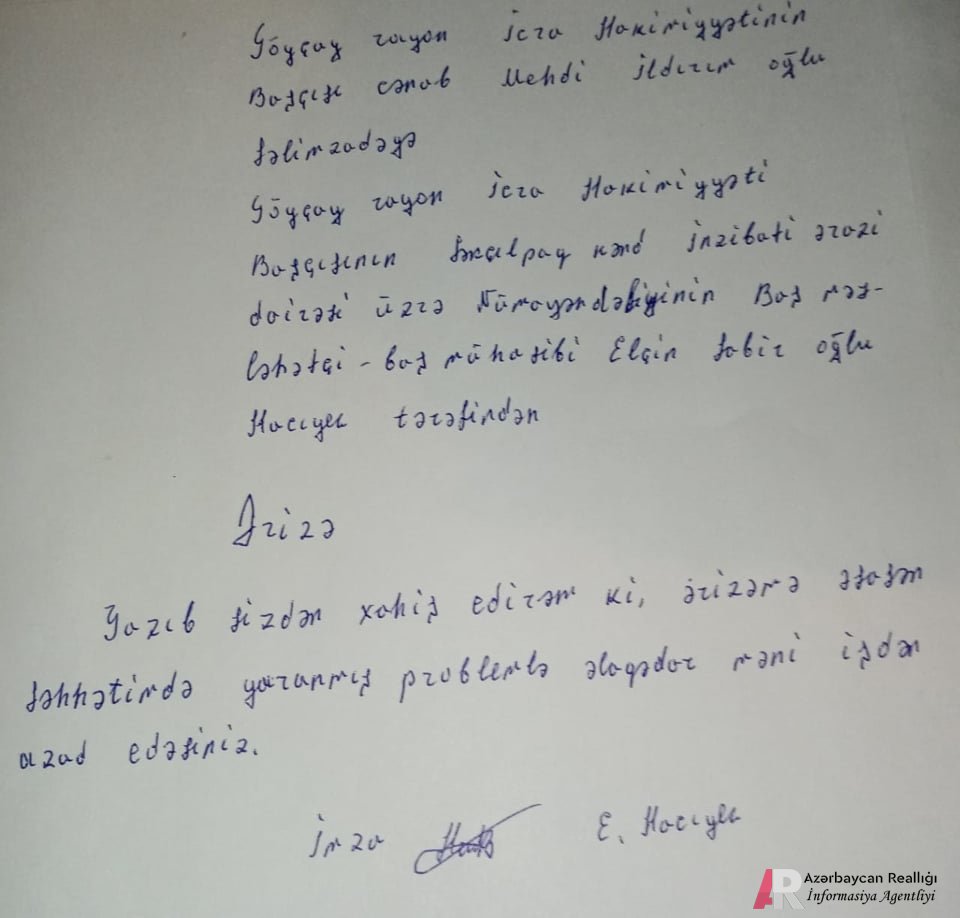 Göyçay rayon İcra Hakimiyyətinin
Başçısı cənab Mehdi İldırım oğlu
Səlimzadəyə
Göyçay rayon İcra Hakimiyyəti
Başçısının Şıxəlpaq kənd inzibati ərazi
dairəsi üzrə Nümayəndəliyinin Baş məs-
ləhətçi - baş mühasibi Elçin Sabir oğlu
Hacıyev tərəfindən
Ərizə
Yazıb sizdən xahiş edirəm ki, ərizəmə əsasən
səhhətimdə yaranmış problemlə əlaqədar məni işdən
azad edəsiniz.
İmza E. Hacıyev
Azərbaycan Reallığı
İnformasiya Agentliyi